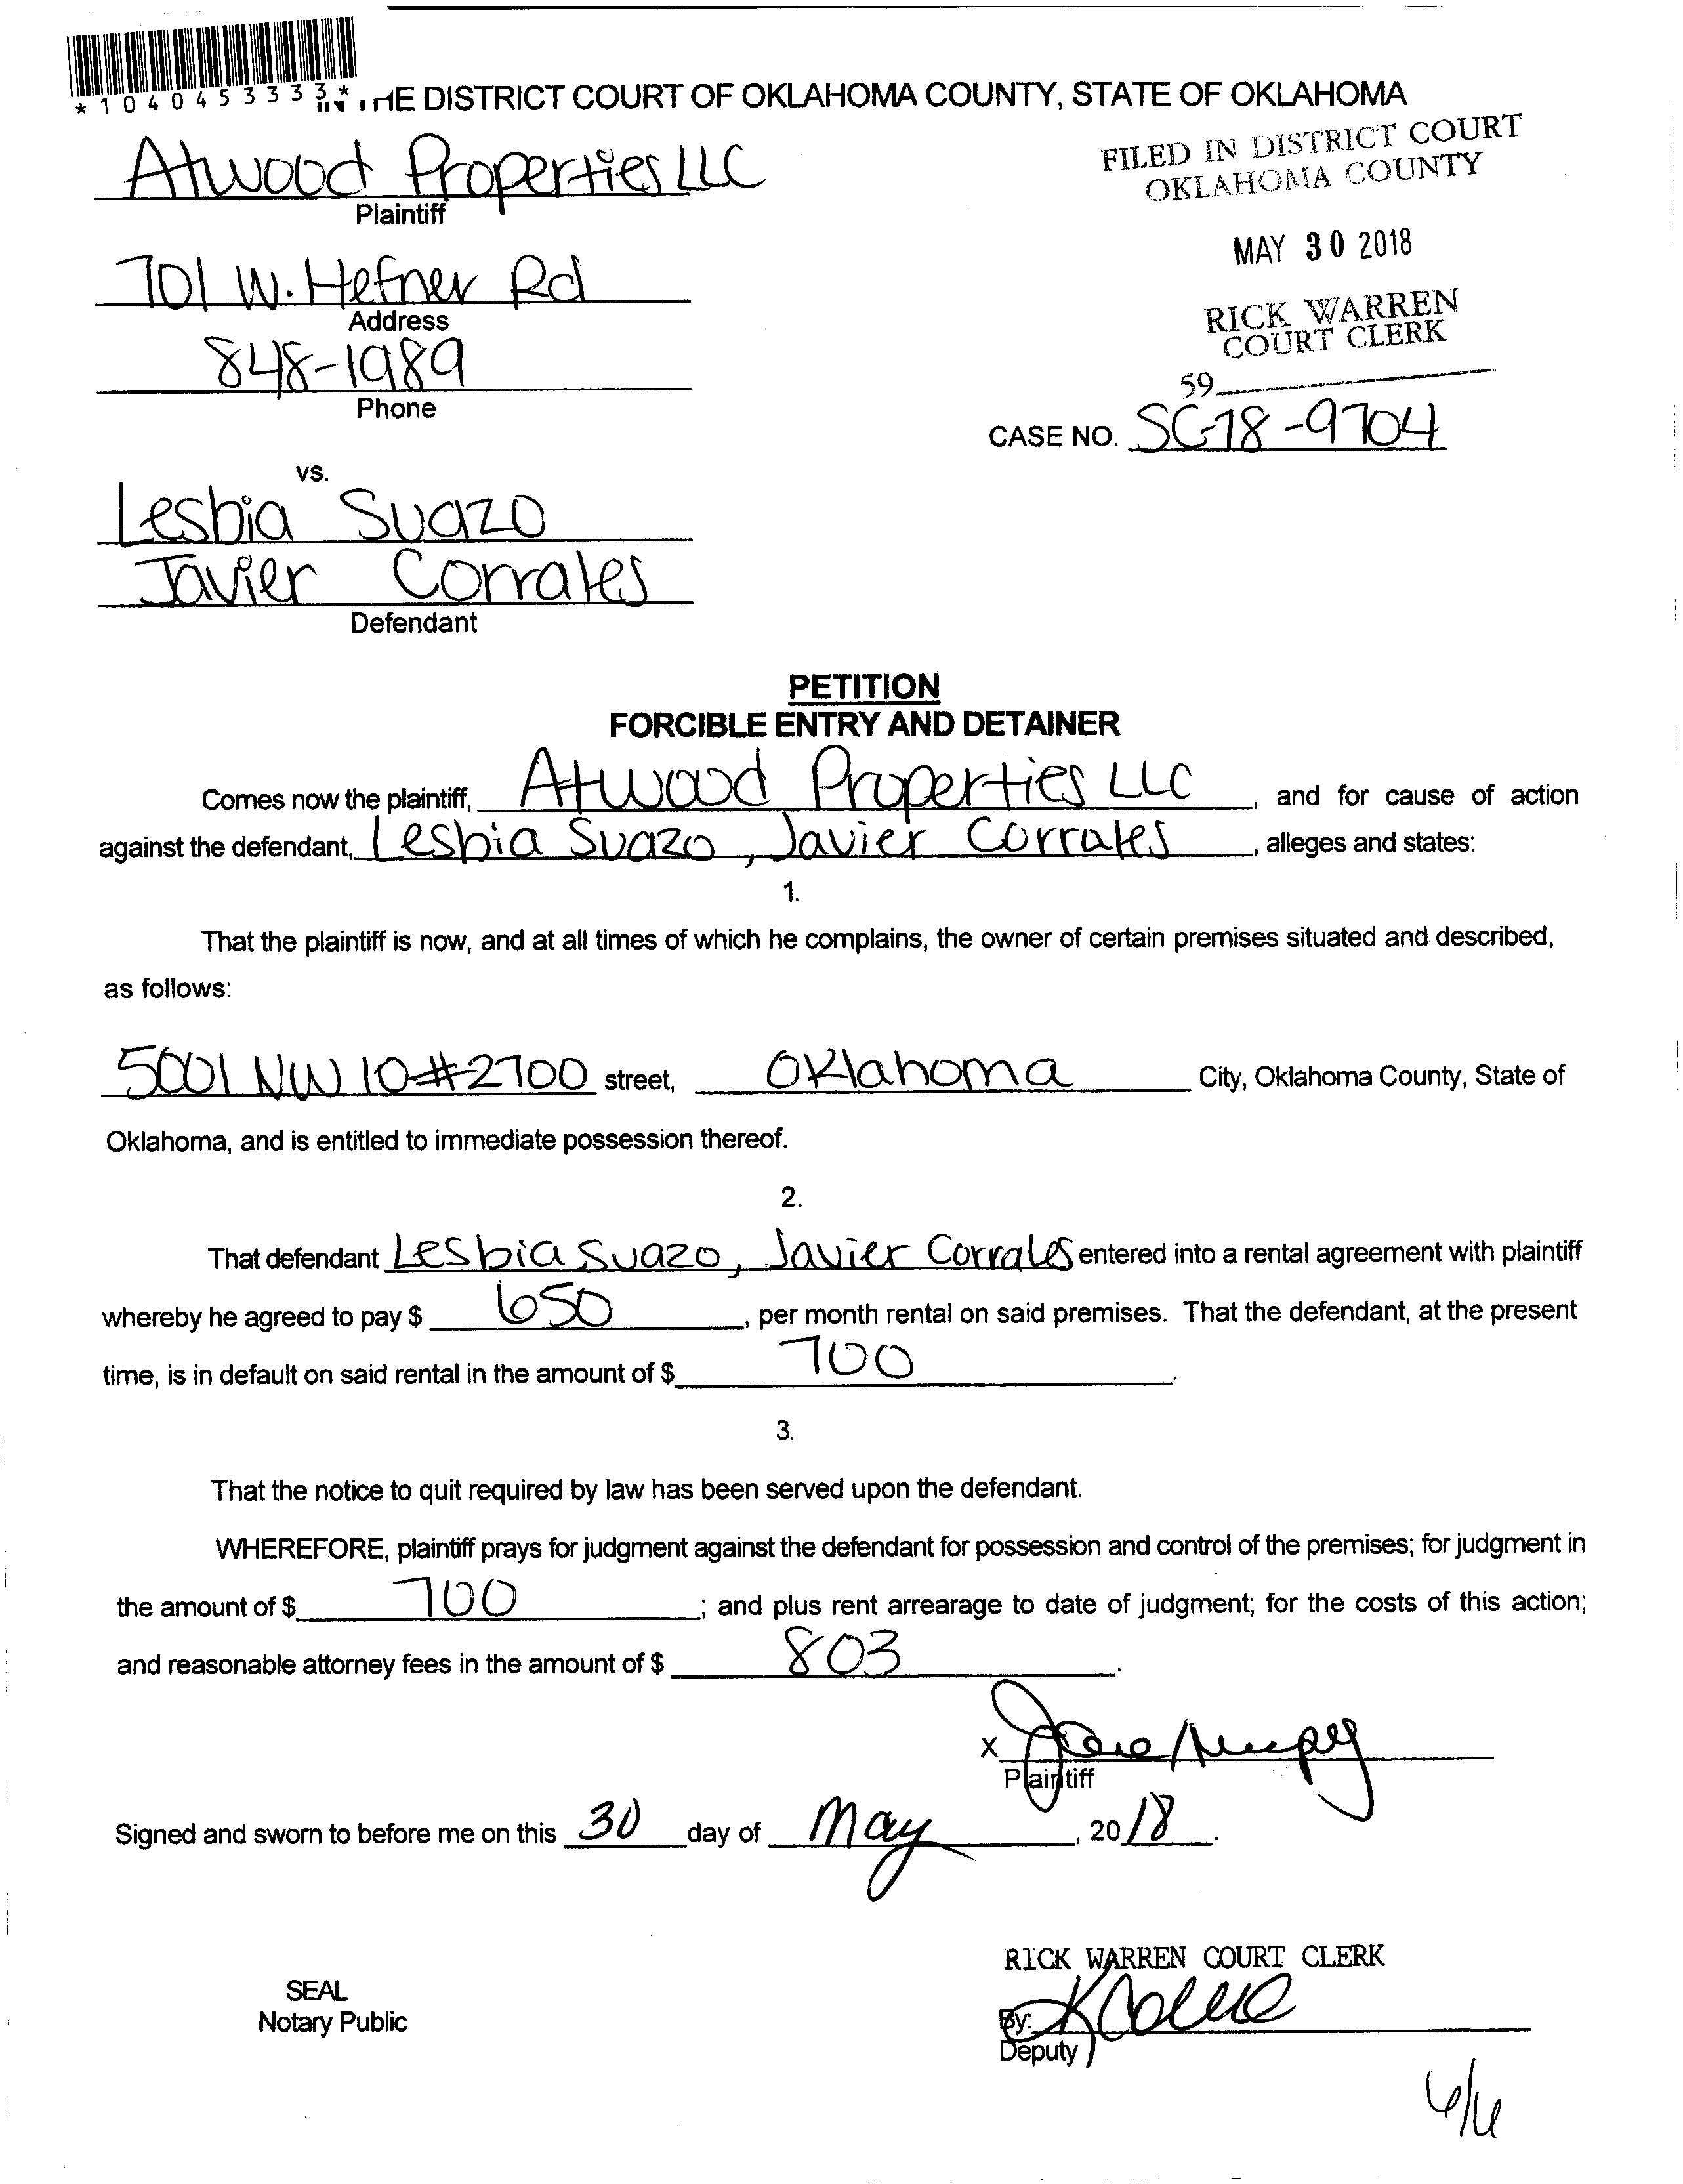 *1040453333*
IN THE DISTRICT COURT OF OKLAHOMA COUNTY, STATE OF OKLAHOMA
FILED IN DISTRICT COURT
OKLAHOMA COUNTY
Atwood Properties LLC
Plaintiff
MAY 30 2018
701 W. Hefner Rd
Address
RICK WARREN
COURT CLERK
848-1989
Phone
59
CASE NO. SC-18-9704
vs.
Lesbia Suazo
Javier Corrales
Defendant
PETITION
FORCIBLE ENTRY AND DETAINER
Comes now the plaintiff, Atwood Properties LLC, and for cause of action
against the defendant, Lesbia Suazo, Javier Corrales, alleges and states:
1.
That the plaintiff is now, and at all times of which he complains, the owner of certain premises situated and described,
as follows:
5001 NW 10 #2700 street, Oklahoma City, Oklahoma County, State of
Oklahoma, and is entitled to immediate possession thereof.
2.
That defendant Lesbia Suazo, Javier Corrales entered into a rental agreement with plaintiff
whereby he agreed to pay $ 650, per month rental on said premises. That the defendant, at the present
time, is in default on said rental in the amount of $ 700.
3.
That the notice to quit required by law has been served upon the defendant.
WHEREFORE, plaintiff prays for judgment against the defendant for possession and control of the premises; for judgment in
the amount of $ 700; and plus rent arrearage to date of judgment; for the costs of this action;
and reasonable attorney fees in the amount of $ 803.
X
Plaintiff
Signed and sworn to before me on this 30 day of May, 2018.
RICK WARREN COURT CLERK
SEAL
Notary Public
By:
Deputy
6/6